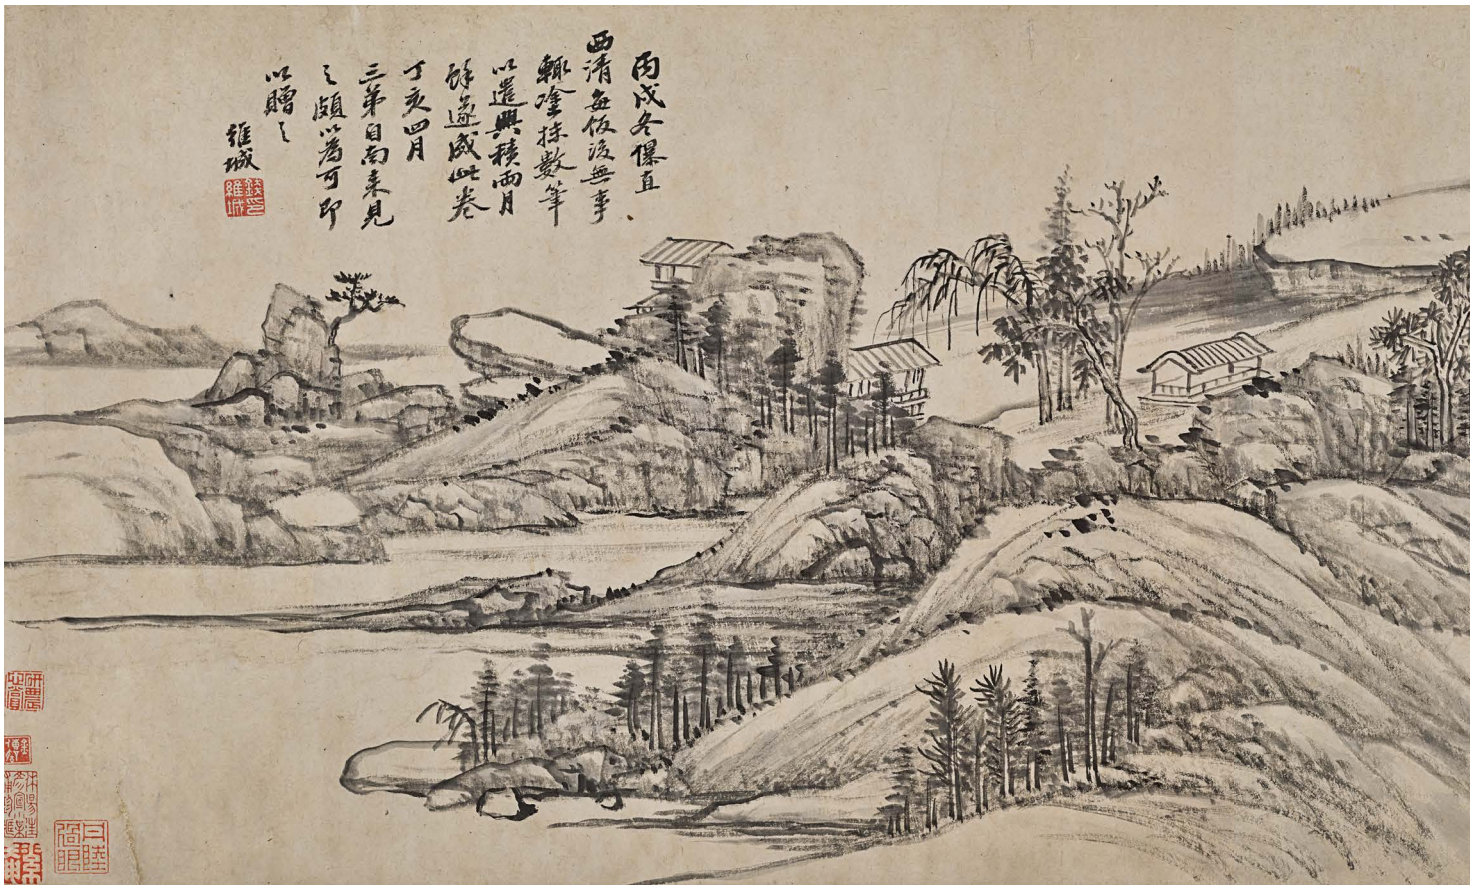 丙戌冬儤直
西清每飯後無事
輒塗抹數筆
以遣興積兩月
餘遂成此卷
丁亥四月
三弟自南來見
之頗以為可即
以贈之
維城
錢維城印
研農之賞